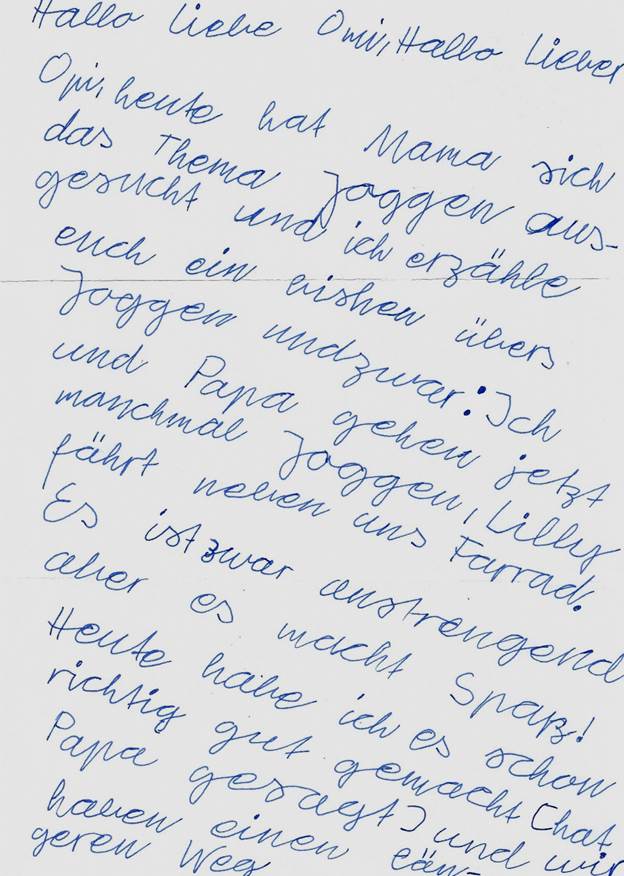 Hallo Liebe Omi, Hallo Lieber
Opi, heute hat Mama sich
das Thema Joggen aus-
gesucht und ich erzähle
euch ein bishen übers
Joggen undzwar: Ich
und Papa gehen jetzt
manchmal Joggen, Lilly
fährt neben uns Farrad.
Es ist zwar anstrengend
aber es macht Spaß!
Heute habe ich es schon
richtig gut gemacht [hat
Papa gesagt] und wir
haben einen län-
geren Weg